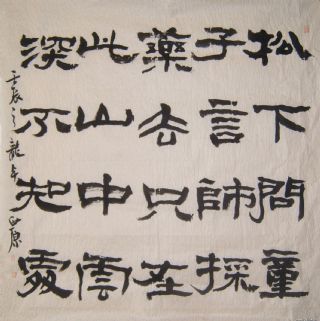 松下問童
子言師採
藥去只在
此山中雲
深不知處
壬辰之龍年